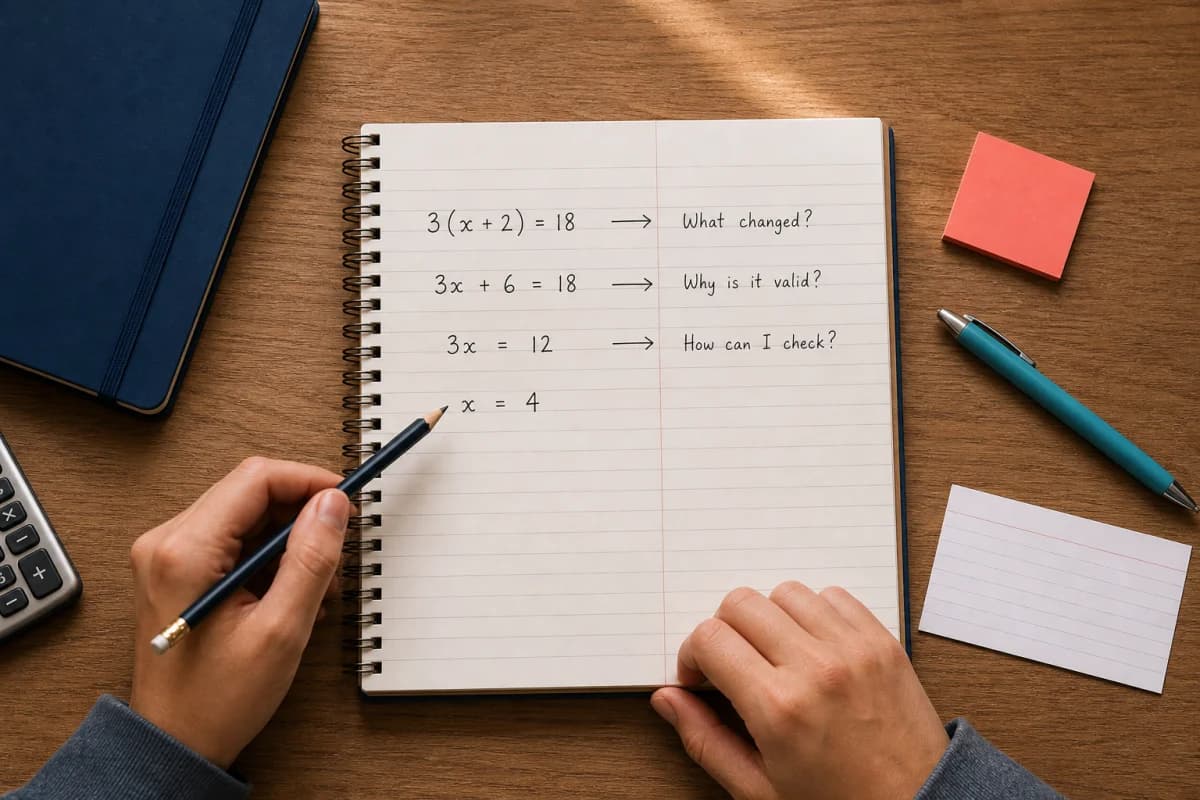 3(x + 2) = 18 → What changed?
3x + 6 = 18 → Why is it valid?
3x = 12 → How can I check?
x = 4
×
−
+
−